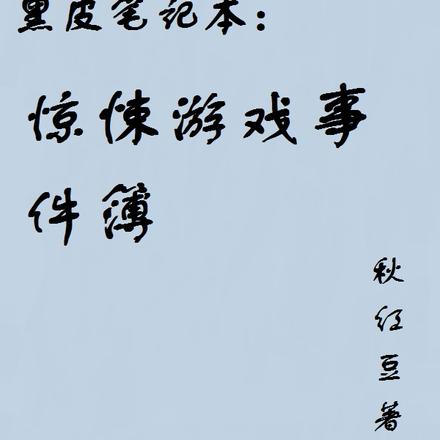 黑皮笔记本：
惊悚游戏事
件簿
秋红豆著